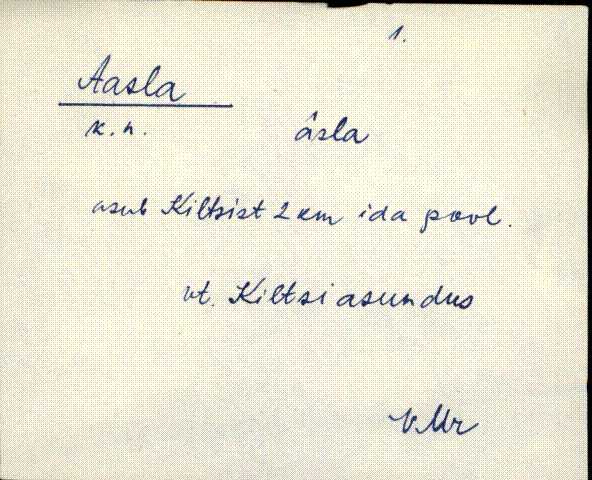 1.
Aasla
k. n. âsla
asub Kiltsist 2 km ida pool.
vt. Kiltsi asundus
V.Mr